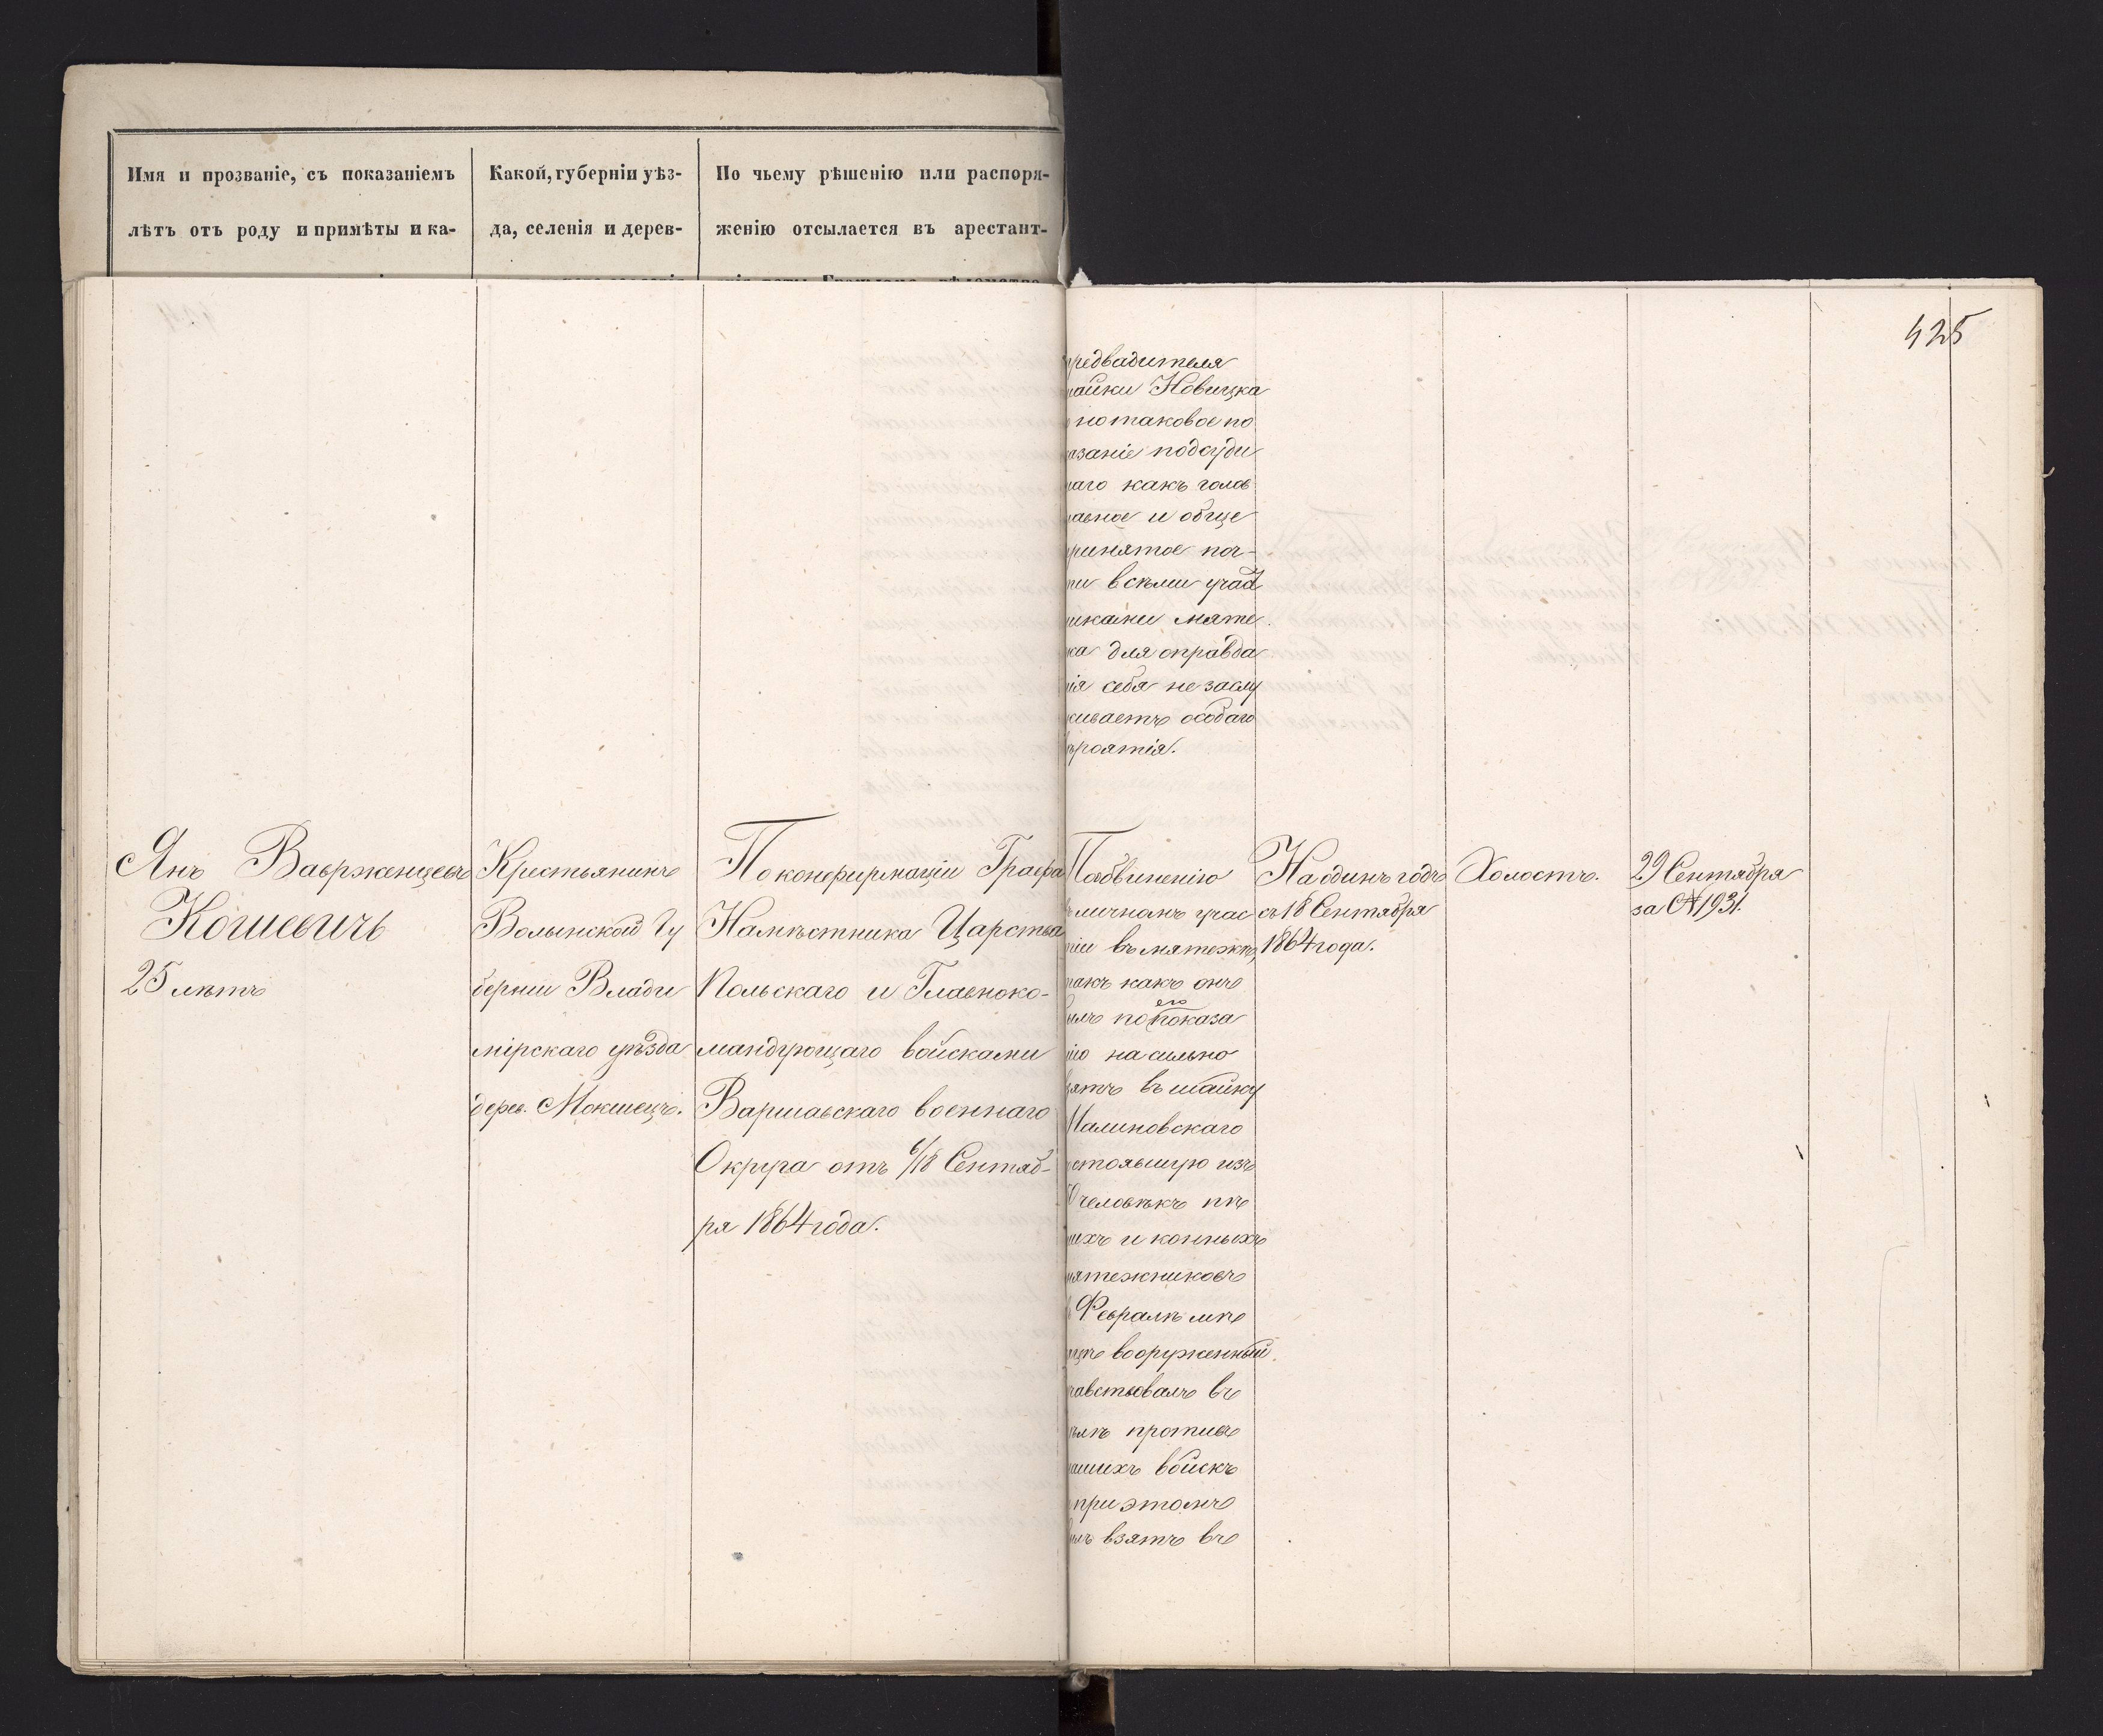 Имя и прозваніе, съ показаніемъ
лѣтъ отъ роду и примѣты и ка-
Какой, губерніи уѣз-
да, селенія и дерев-
По чьему рѣшенію или распоря-
женію отсылается въ арестант-
425
редвадителя
айки Новицка
но таковое по
азаніе подсуди
аго какъ голос
авное и обще
ринятое поч-
ти всѣми учас
иками мяте
жа для оправда
ія себя не заслу
живаетъ особаго
ѣроятія.
Янъ Вавржинцевъ
Кошевичъ
25 лѣтъ
Крестьянинъ
Волынской Гу
берніи Влади
мірскаго уѣзда
дерев. Мокшецъ.
По конфирмаціи Графа
Намѣстника Царства
Польскаго и Главноко-
мандующаго войсками
Варшавскаго военнаго
Округа отъ 6/18 Сентяб-
ря 1864 года.
По обвиненію
личномъ учас
тіи въ мятежѣ,
такъ какъ онъ
ылъ по его показа
ію насильно
зятъ въ шайку
Малиновскаго
стоявшую изъ
человѣкъ пѣ
ихъ и конныхъ
мятежниковъ
Февралѣ мѣ
яцѣ вооруженный
авствовалъ въ
ѣлѣ противъ
ашихъ войскъ
при этомъ
ылъ взятъ въ
На одинъ годъ
съ 18 Сентября
1864 года.
Холостъ.
29 Сентября
за № 1931.